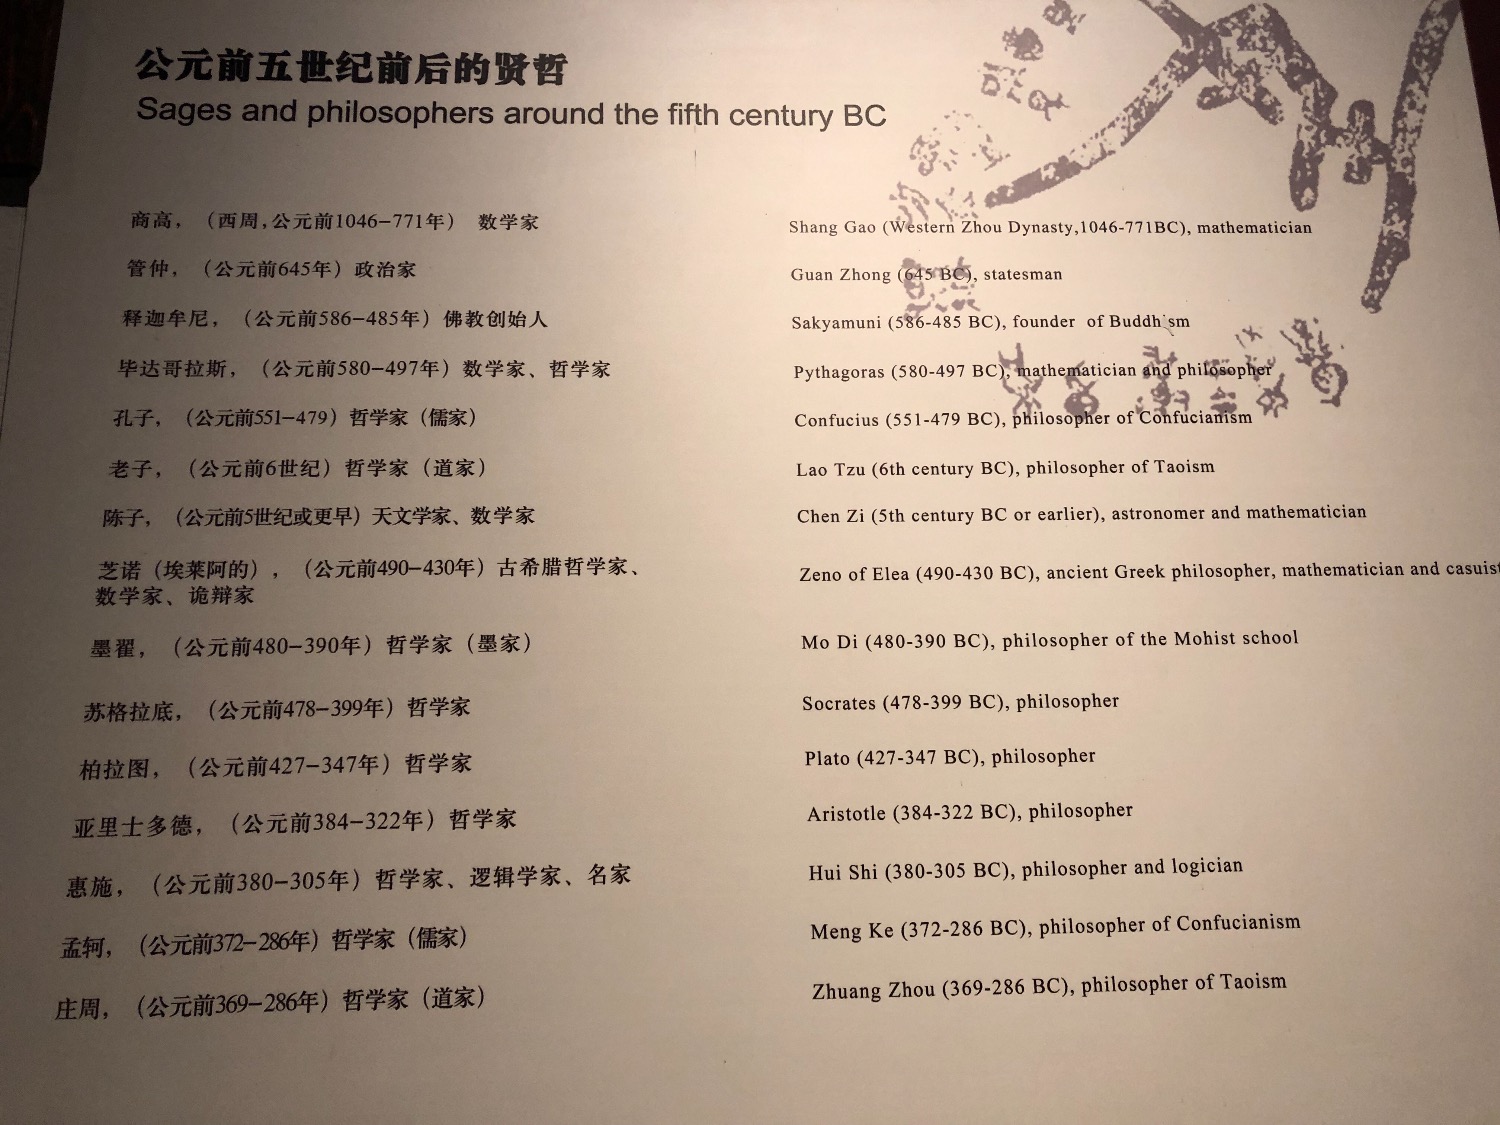 公元前五世纪前后的贤哲
Sages and philosophers around the fifth century BC
商高，（西周,公元前1046-771年） 数学家
Shang Gao (Western Zhou Dynasty,1046-771BC), mathematician
管仲，（公元前645年）政治家
Guan Zhong (645 BC), statesman
释迦牟尼，（公元前586-485年）佛教创始人
Sakyamuni (586-485 BC), founder of Buddhism
毕达哥拉斯，（公元前580-497年）数学家、哲学家
Pythagoras (580-497 BC), mathematician and philosopher
孔子，（公元前551-479）哲学家（儒家）
Confucius (551-479 BC), philosopher of Confucianism
老子，（公元前6世纪）哲学家（道家）
Lao Tzu (6th century BC), philosopher of Taoism
陈子，（公元前5世纪或更早）天文学家、数学家
Chen Zi (5th century BC or earlier), astronomer and mathematician
芝诺（埃莱阿的），（公元前490-430年）古希腊哲学家、
数学家、诡辩家
Zeno of Elea (490-430 BC), ancient Greek philosopher, mathematician and casuist
墨翟，（公元前480-390年）哲学家（墨家）
Mo Di (480-390 BC), philosopher of the Mohist school
苏格拉底，（公元前478-399年）哲学家
Socrates (478-399 BC), philosopher
柏拉图，（公元前427-347年）哲学家
Plato (427-347 BC), philosopher
亚里士多德，（公元前384-322年）哲学家
Aristotle (384-322 BC), philosopher
惠施，（公元前380-305年）哲学家、逻辑学家、名家
Hui Shi (380-305 BC), philosopher and logician
孟轲，（公元前372-286年）哲学家（儒家）
Meng Ke (372-286 BC), philosopher of Confucianism
庄周，（公元前369-286年）哲学家（道家）
Zhuang Zhou (369-286 BC), philosopher of Taoism